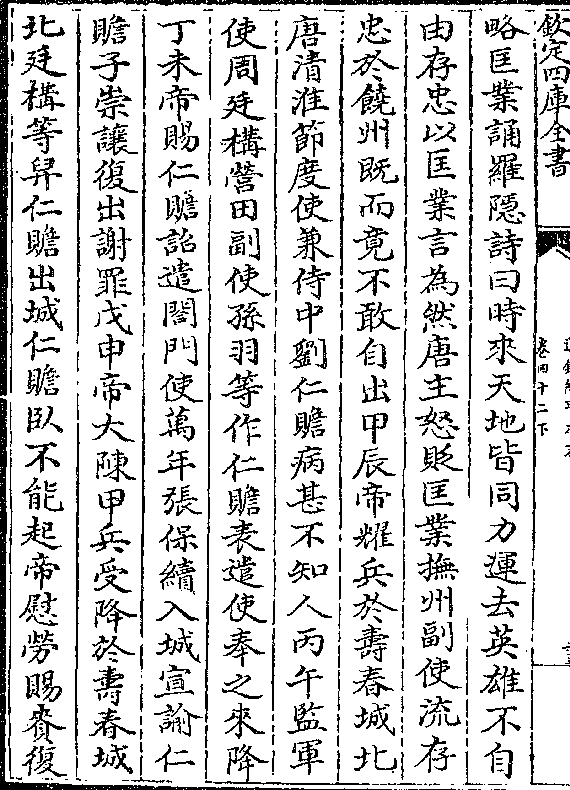 欽定四庫全書
略匡業誦羅隱詩曰時來天地皆同力運去英雄不自
由存忠以匡業言為然唐主怒貶匡業撫州副使流存
忠於饒州既而竟不敢自出甲辰帝耀兵於壽春城北
唐清淮節度使兼侍中劉仁贍病甚不知人丙午監軍
使周廷構營田副使孫羽等作仁贍表遣使奉之來降
丁未帝賜仁贍詔遣閤門使萬年張保續入城宣諭仁
贍子崇讓復出謝罪戊申帝大陳甲兵受降於壽春城
北廷構等舁仁贍出城仁贍臥不能起帝慰勞賜賚復
卷四十二下